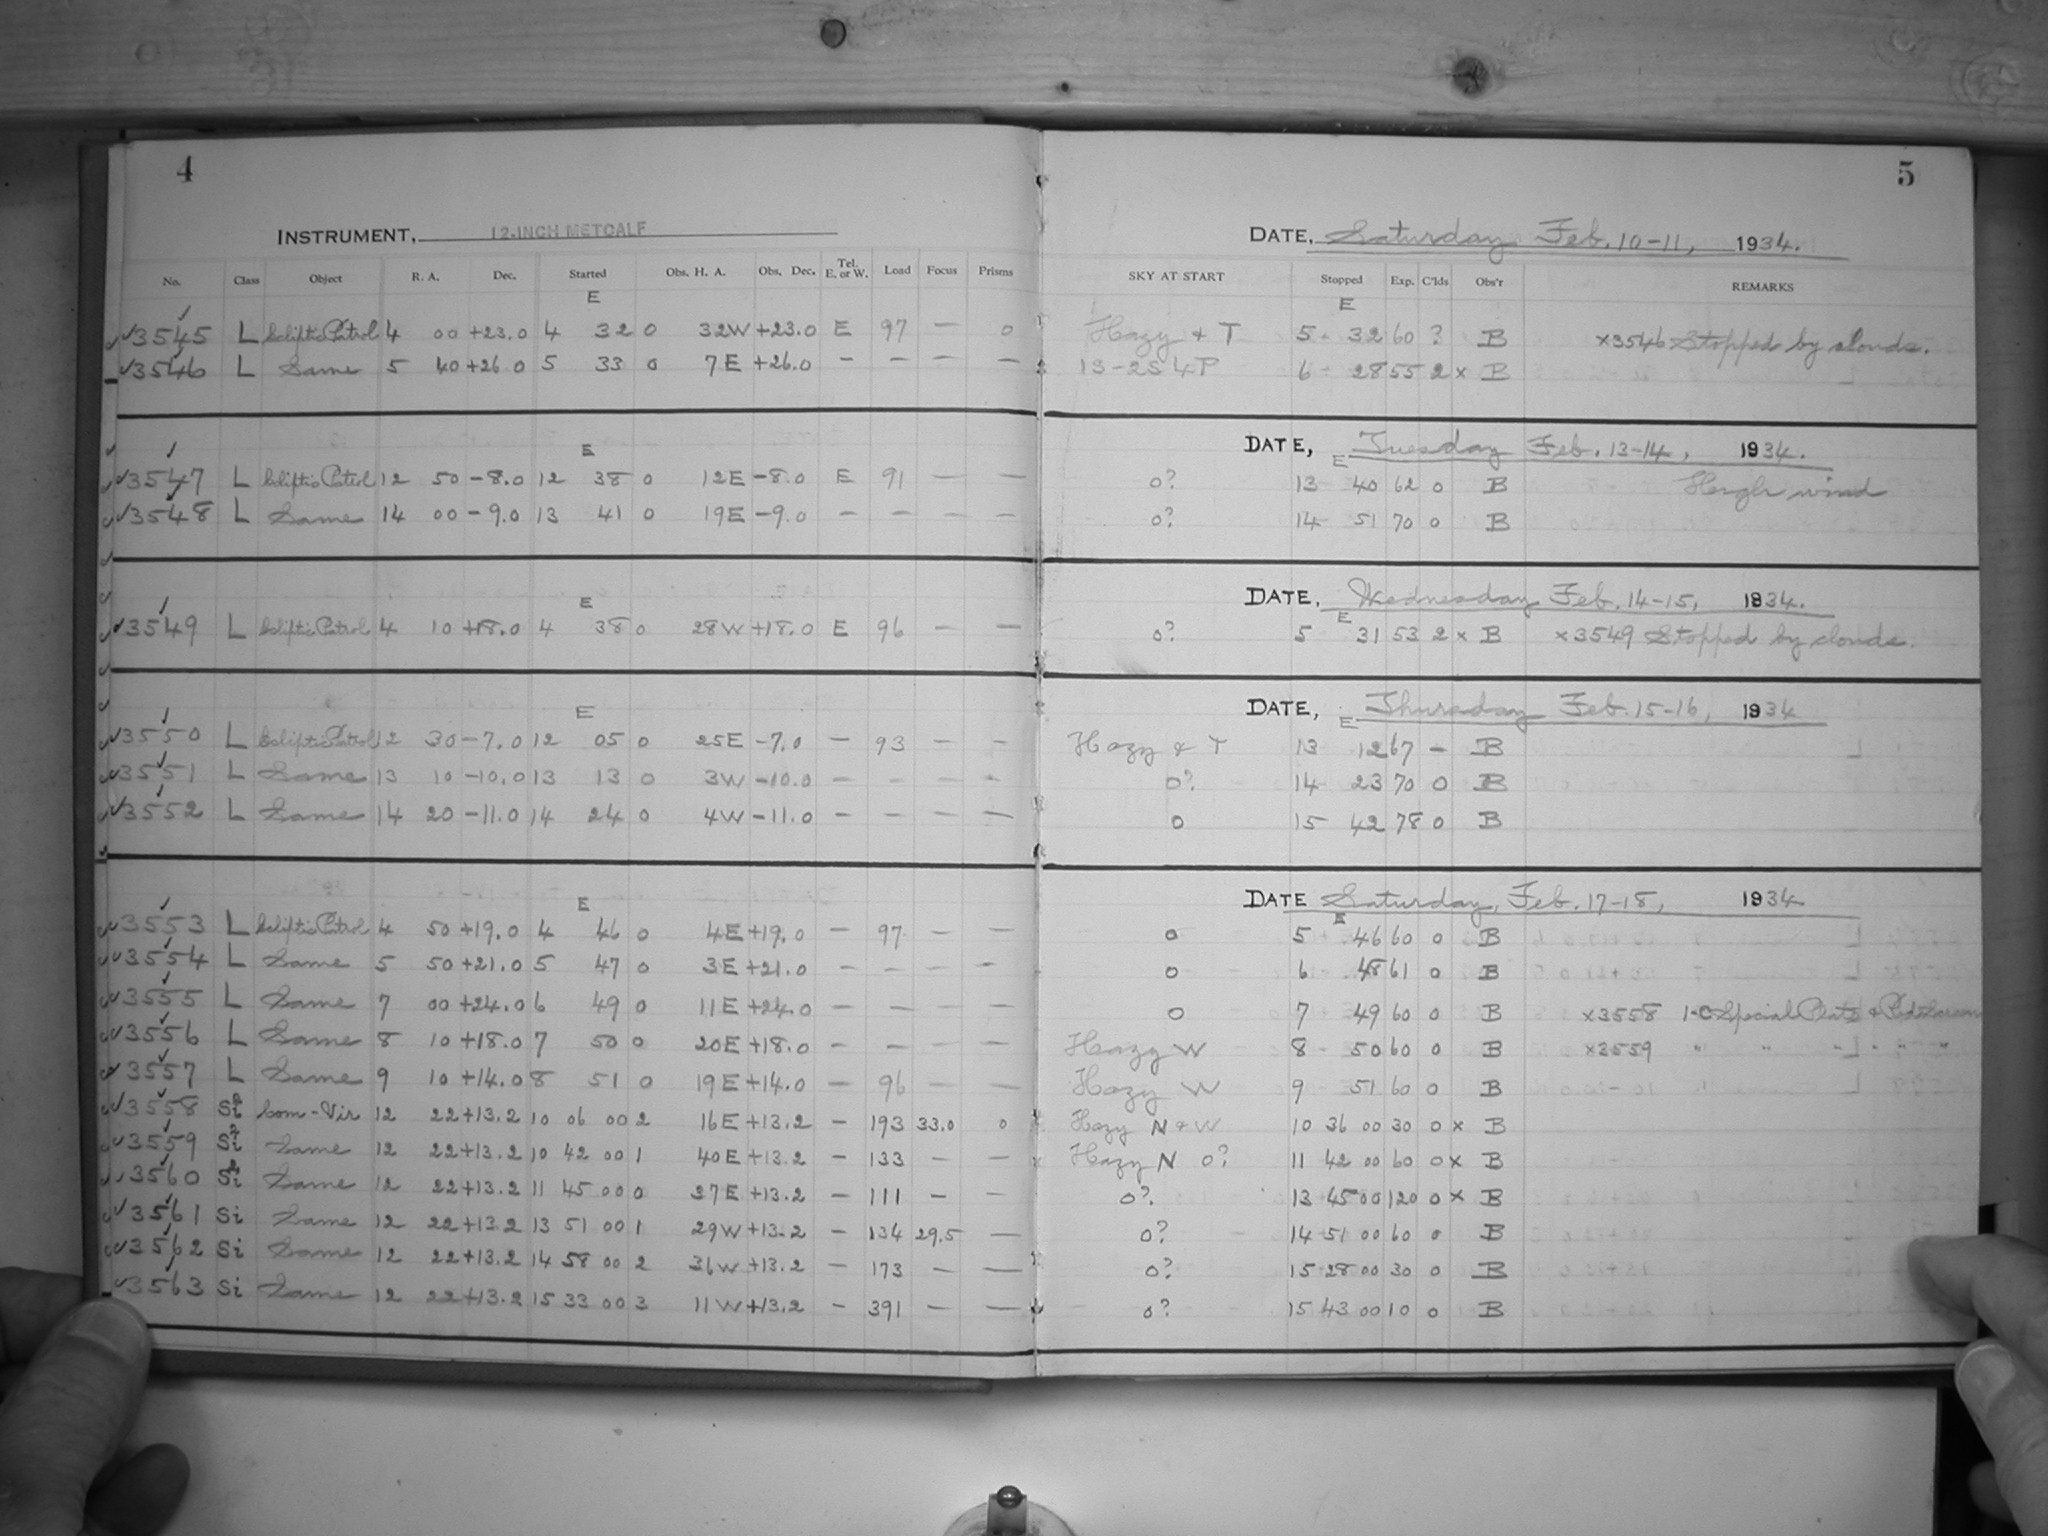 4
INSTRUMENT, 12-INCH METCALF
No. Class Object R. A. Dec. Started Obs. H. A. Obs. Dec. Tel. E. or W. Load Focus Prisms
E
3545 L Ecliptic Patrol 4 00 +23.0 4 32 0 32W +23.0 E 97 — 0
3546 L Same 5 40 +26.0 5 33 0 7E +26.0 — — — —
E
3547 L Ecliptic Patrol 12 50 -8.0 12 38 0 12E -8.0 E 91 — —
3548 L Same 14 00 -9.0 13 41 0 19E -9.0 — — — —
E
3549 L Ecliptic Patrol 4 10 +18.0 4 38 0 28W +18.0 E 96 — —
E
3550 L Ecliptic Patrol 12 30 -7.0 12 05 0 25E -7.0 — 93 — —
3551 L Same 13 10 -10.0 13 13 0 3W -10.0 — — — —
3552 L Same 14 20 -11.0 14 24 0 4W -11.0 — — — —
E
3553 L Ecliptic Patrol 4 50 +19.0 4 46 0 4E +19.0 — 97 — —
3554 L Same 5 50 +21.0 5 47 0 3E +21.0 — — — —
3555 L Same 7 00 +24.0 6 49 0 11E +24.0 — — — —
3556 L Same 8 10 +18.0 7 50 0 20E +18.0 — — — —
3557 L Same 9 10 +14.0 8 51 0 19E +14.0 — 96 — —
3558 Si Com-Vir 12 22 +13.2 10 06 00 2 16E +13.2 — 193 33.0 0
3559 Si Same 12 22 +13.2 10 42 00 1 40E +13.2 — 133 — —
3560 Si Same 12 22 +13.2 11 45 00 0 37E +13.2 — 111 — —
3561 Si Same 12 22 +13.2 13 51 00 1 29W +13.2 — 134 29.5 —
3562 Si Same 12 22 +13.2 14 58 00 2 36W +13.2 — 173 — —
3563 Si Same 12 22 +13.2 15 33 00 3 11W +13.2 — 391 — —
5
DATE, Saturday Feb. 10-11, 1934.
SKY AT START Stopped Exp. C'lds Obs'r REMARKS
E
Hazy & T 5 32 60 ? B x3546 Stopped by clouds.
1S-2S4P 6 28 55 2 x B
DATE, Tuesday Feb. 13-14, 1934.
E
0? 13 40 62 0 B High wind
0? 14 51 70 0 B
DATE, Wednesday Feb. 14-15, 1934.
E
0? 5 31 53 2 x B x3549 Stopped by clouds.
DATE, Thursday Feb. 15-16, 1934
E
Hazy & T 13 12 67 — B
0? 14 23 70 0 B
0 15 42 78 0 B
DATE Saturday, Feb. 17-18, 1934
E
0 5 46 60 0 B
0 6 48 61 0 B
0 7 49 60 0 B x3558 1-C Special Plate &
Hazy W 8 50 60 0 B x3559 " " " "
Hazy W 9 51 60 0 B
Hazy N & W 10 36 00 30 0 x B
Hazy N 0? 11 42 00 60 0 x B
0? 13 45 00 120 0 x B
0? 14 51 00 60 0 B
0? 15 28 00 30 0 B
0? 15 43 00 10 0 B